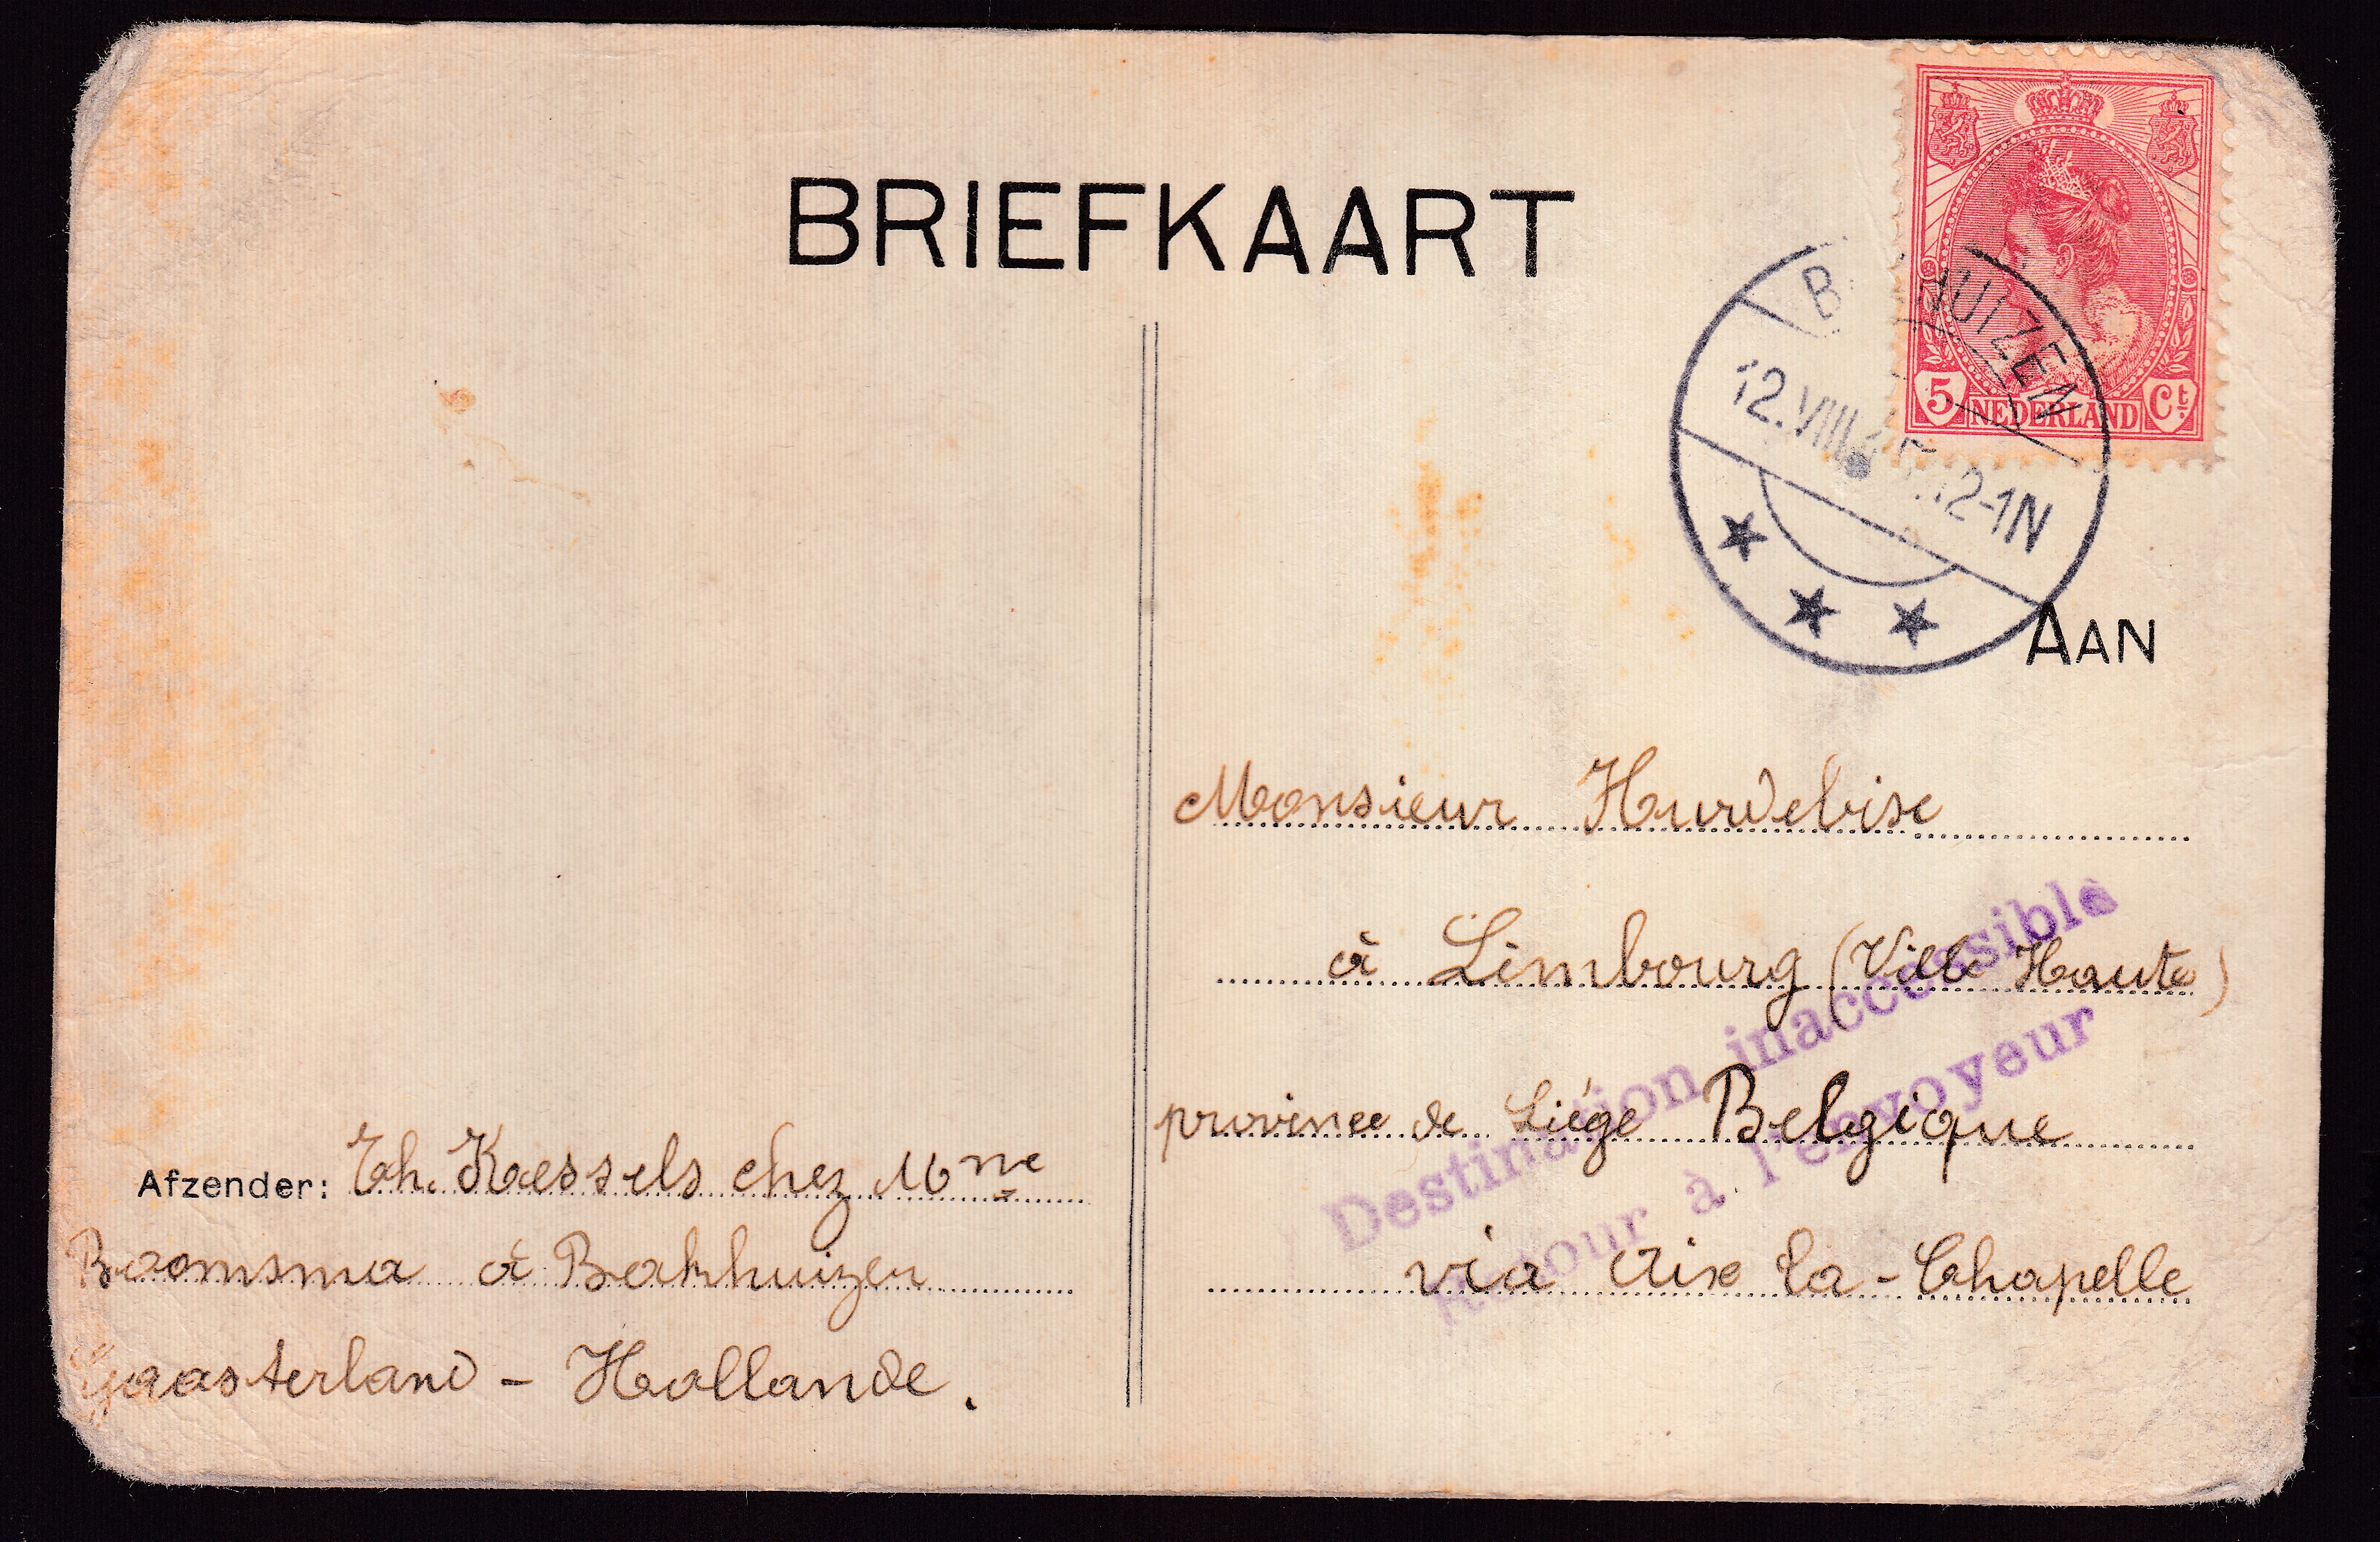 BRIEFKAART
5 NEDERLAND Ct.
HUIZEN
12.VIII 12-1N
AAN
Monsieur Hurdebise
à Limbourg (Ville Haute)
province de Liége Belgique
via Aix la-Chapelle
Destination inaccessible
Retour à l'envoyeur
Afzender: Th. Kaessels chez Mme
Boomsma à Bakhuizen
Gaasterland - Hollande.